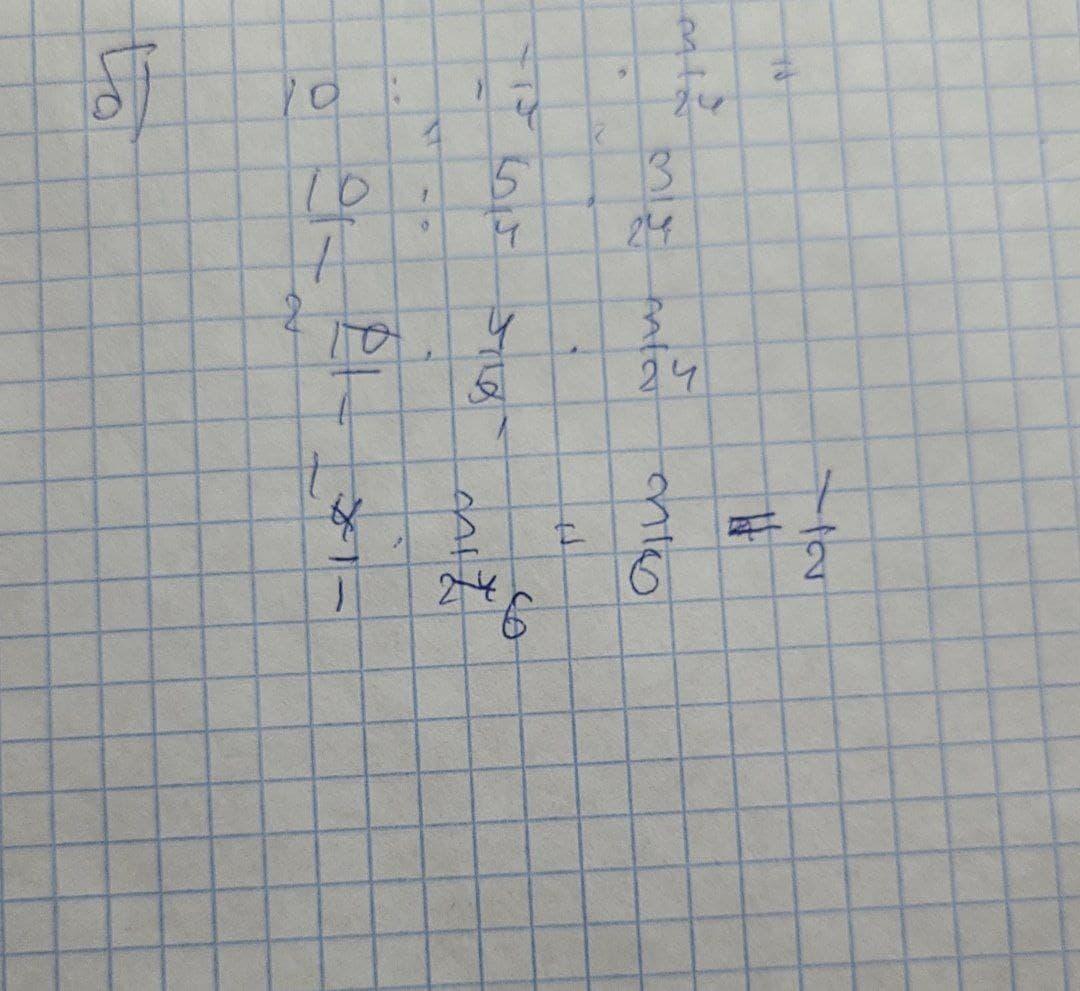 б) 10 : 1 1/4 · 3/24 =
10/1 : 5/4 · 3/24
2 10/1 · 4/5 · 3/24 1
1 4/1 · 3/24 6 = 3/6 = 1/2